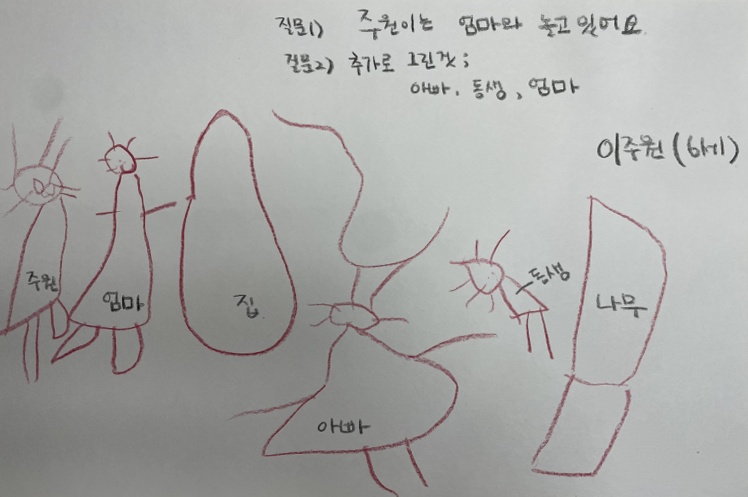 질문1) 주원이는 엄마와 놀고 있어요.
질문2) 추가로 그린것;
아빠, 동생, 엄마
이주원(6세)
주원
엄마
집
아빠
동생
나무